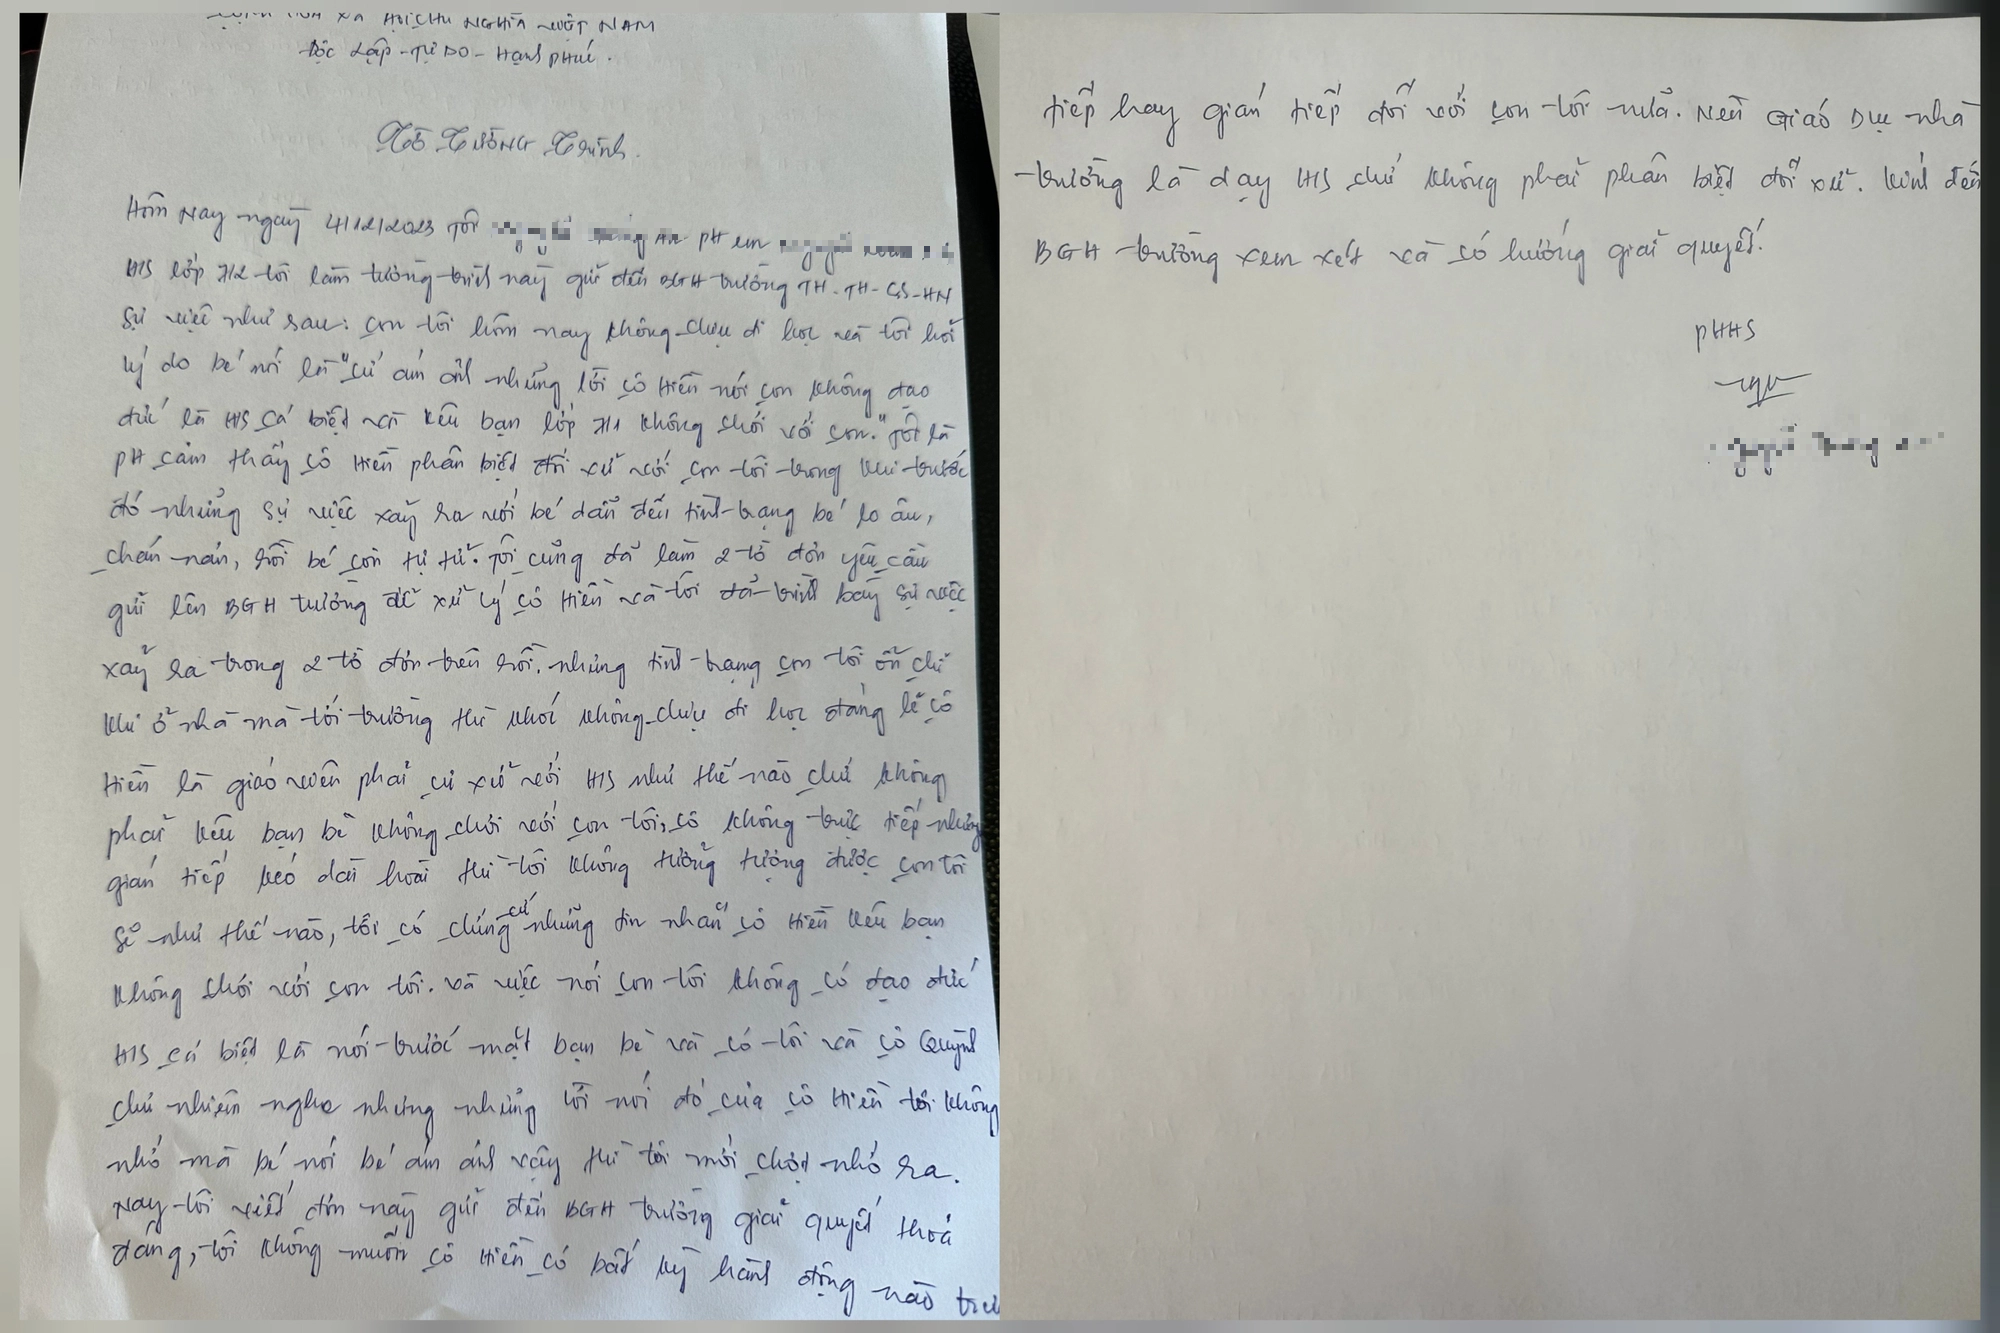 CỘNG HÒA XÃ HỘI CHỦ NGHĨA VIỆT NAM
Độc Lập - Tự Do - Hạnh Phúc.
Tờ Tường Trình.
Hôm Nay ngày 4/12/2023 Tôi PH em
HS lớp 7/2 tôi làm tường trình này gửi đến BGH trường TH-TH-CS-HN
Sự việc như sau: con tôi hôm nay không chịu đi học và tôi hỏi
lý do bé nói là "cứ ám ảnh những lời cô Hiền nói con không đạo
đức là HS cá biệt và kêu bạn lớp 7/1 không chơi với con." Tôi là
PH cảm thấy cô Hiền phân biệt đối xử với con tôi trong khi trước
đó những sự việc xảy ra với bé dẫn đến tình trạng bé lo âu,
chán nản, rồi bé còn tự tử. Tôi cũng đã làm 2 tờ đơn yêu cầu
gửi lên BGH trường để xử lý cô Hiền và tôi đã trình bày sự việc
xảy ra trong 2 tờ đơn trên rồi. nhưng tình trạng con tôi ổn chỉ
khi ở nhà mà tới trường thì khóc không chịu đi học đáng lẽ cô
Hiền là giáo viên phải cư xử với HS như thế nào chứ không
phải kêu bạn bè không chơi với con tôi, cô không trực tiếp nhưng
gián tiếp kéo dài hoài thì tôi không tưởng tượng được con tôi
sẽ như thế nào, tôi có chứng cứ những tin nhắn cô Hiền kêu bạn
không chơi với con tôi. và việc nói con tôi không có đạo đức
HS cá biệt là nói trước mặt bạn bè và có tôi và cô Quỳnh
chủ nhiệm nghe nhưng những lời nói đó của cô Hiền tôi không
nhớ mà bé nói bé ám ảnh vậy thì tôi mới chợt nhớ ra.
Nay tôi viết đơn này gửi đến BGH trường giải quyết thoả
đáng, tôi không muốn cô Hiền có bất kỳ hành động nào trực
tiếp hay gián tiếp đối với con tôi nữa. Nền Giáo Dục nhà
trường là dạy HS chứ không phải phân biệt đối xử. Kính đến
BGH trường xem xét và có hướng giải quyết.
PHHS